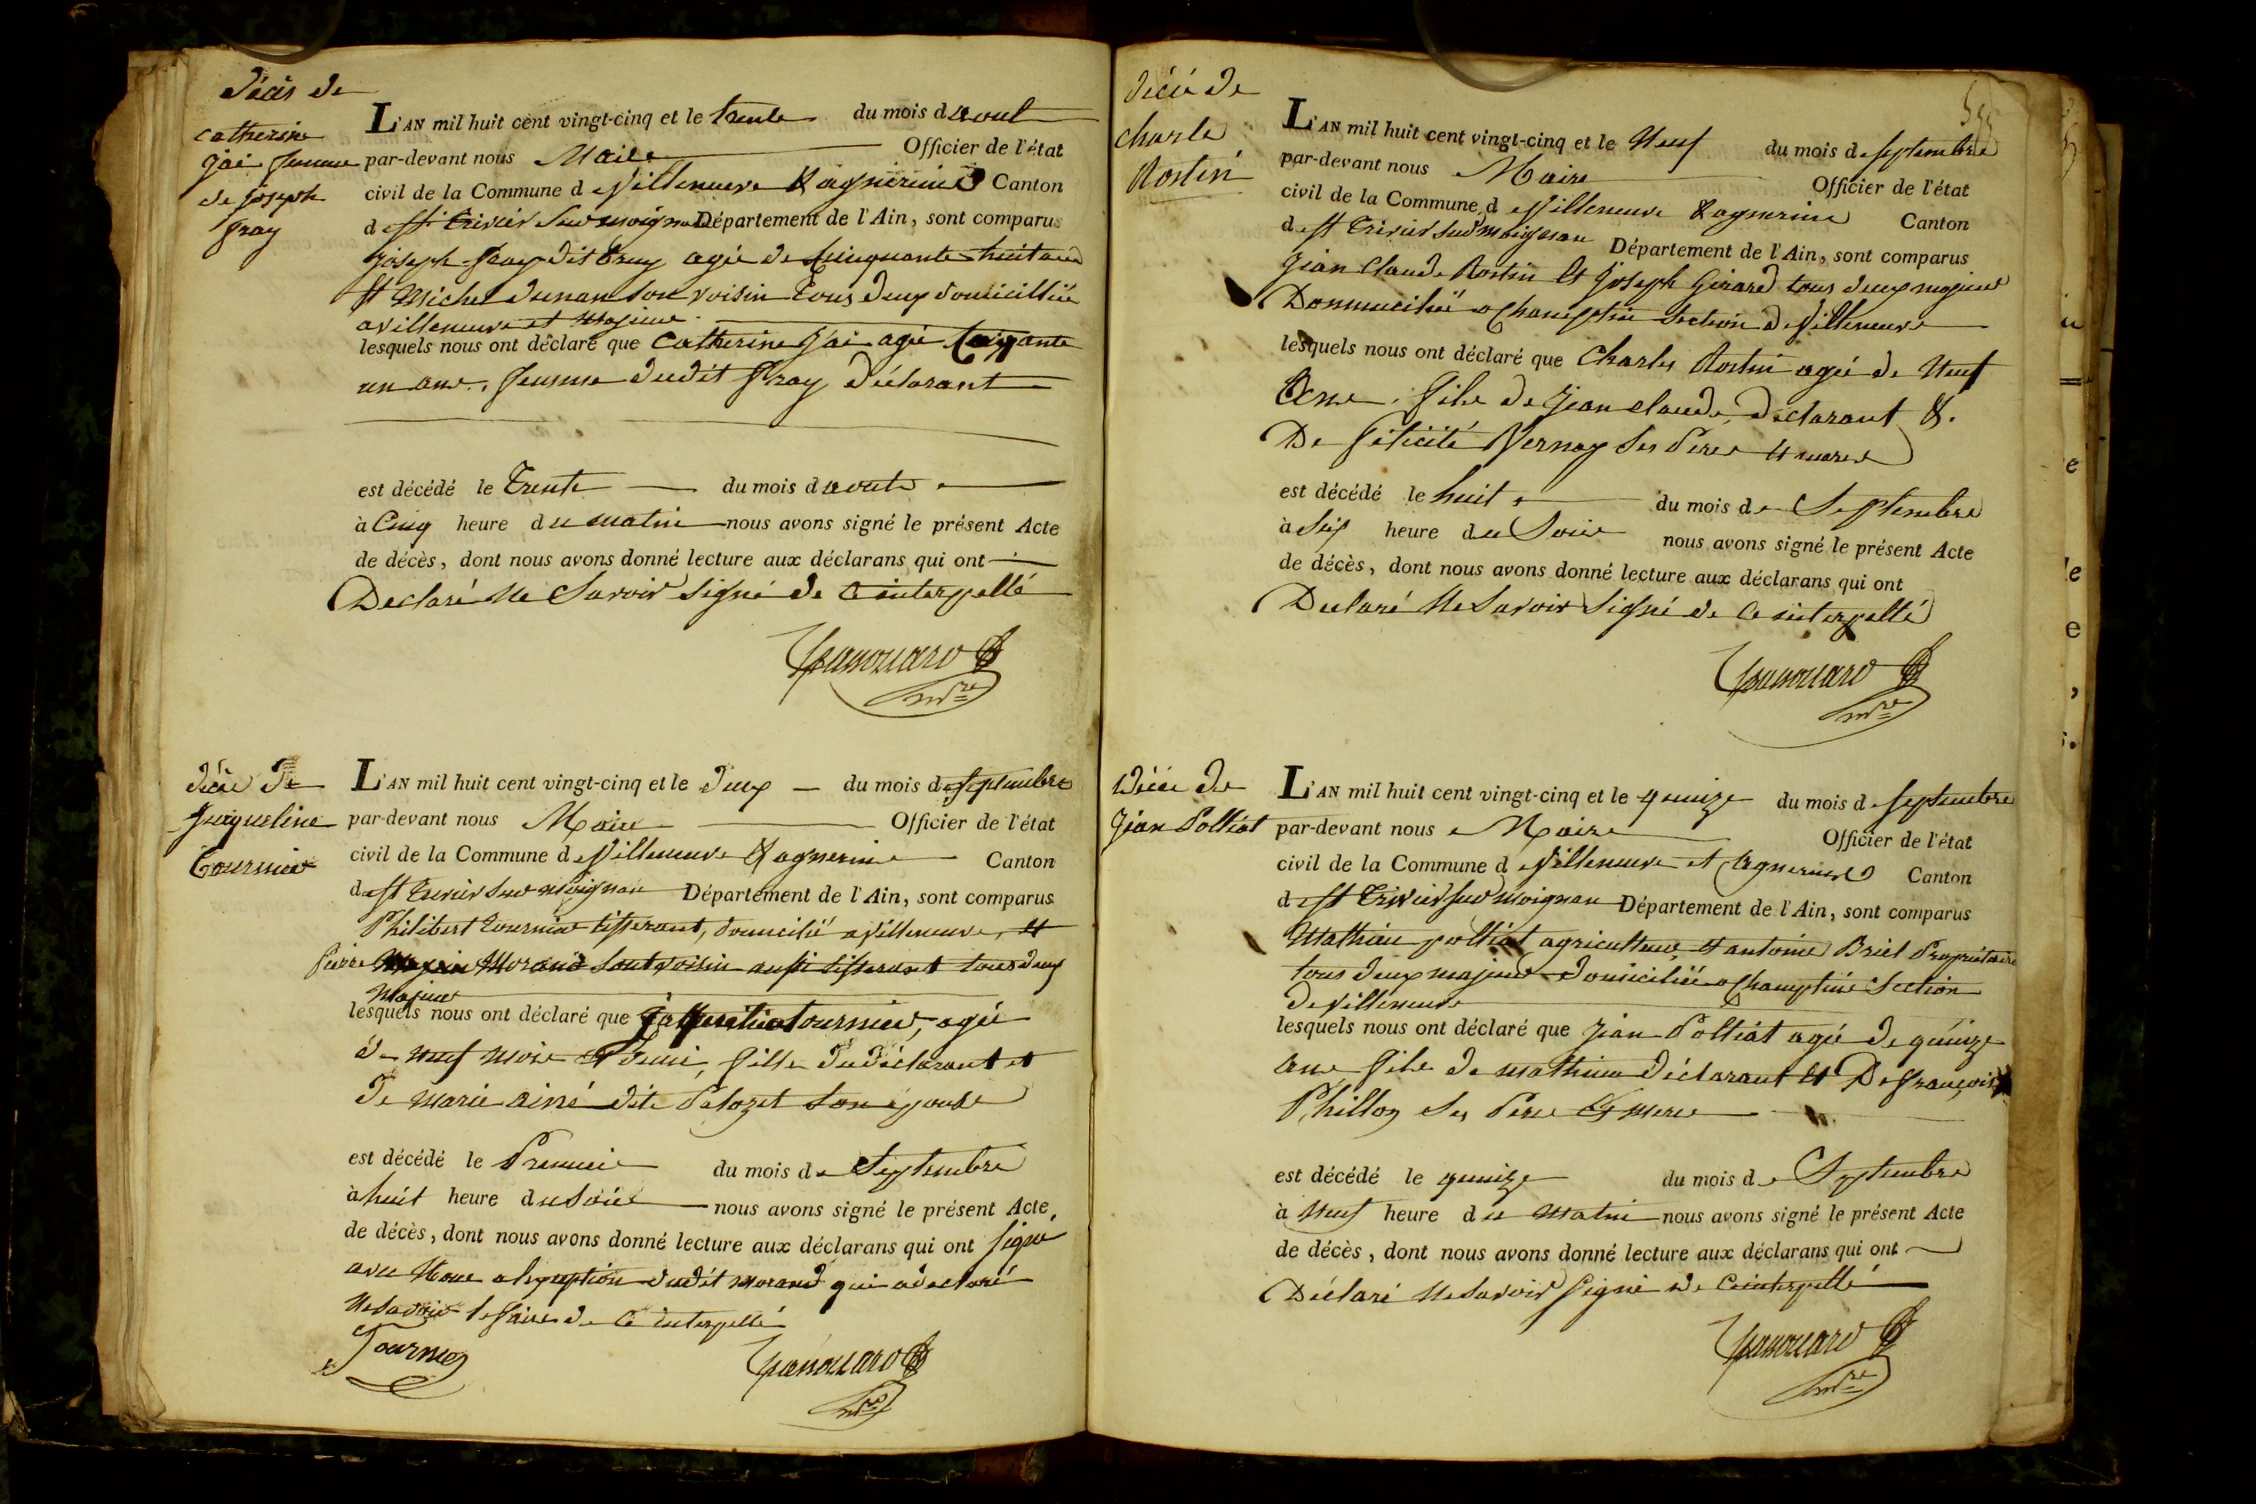 décès de
catherine
jai femme
de joseph
fray
L'AN mil huit cent vingt-cinq et le trente du mois d aout
par-devant nous Maire Officier de l'état
civil de la Commune de Villeneuve & agnereins Canton
de st trivier sur moignans Département de l'Ain, sont comparus
joseph fray dit agée de Cinquante huit ans
et Michel dunan son voisin tous deux domiciliés
a villeneuve et majeurs
lesquels nous ont déclaré que Catherine jai agée soixante
un ans, femme dudit fray déclarant
est décédé le trente du mois d aout
à Cinq heure du matin nous avons signé le présent Acte
de décès, dont nous avons donné lecture aux déclarans qui ont
Declaré ne Savoir signé de ce interpellé
décès de
jacqueline
tournier
L'AN mil huit cent vingt-cinq et le deux du mois de septembre
par-devant nous Maire Officier de l'état
civil de la Commune de Villeneuve & agnereins Canton
de st trivier sur moignans Département de l'Ain, sont comparus
Philibert tournier tisserant, domicilié a villeneuve, et
pierre Morand son voisin aussi tisserant tous deux
majeurs
lesquels nous ont déclaré que tournier, agée
de neuf mois et demi, fille du déclarant et
de marie ainé dite Pelozet son épouse
est décédé le Premier du mois de Septembre
à huit heure du soir nous avons signé le présent Acte,
de décès, dont nous avons donné lecture aux déclarans qui ont signé
avec Nous a lexception dudit morand qui a declaré
ne savoir le faire de ce interpellé
Tournier
décè de
charle
Rostin
L'AN mil huit cent vingt-cinq et le Neuf du mois de septembre
par-devant nous Maire Officier de l'état
civil de la Commune de Villeneuve & agnereins Canton
de st trivier sur moignans Département de l'Ain, sont comparus
jean claude Rostin et joseph girard tous deux majeurs
Domiciliés a Chaneins section de Villeneuve
lesquels nous ont déclaré que Charles Rostin agé de Neuf
Ans, fils de jean claude, déclarant &.
De félicité Vernay ses Pères et mères
est décédé le huit du mois de Septembre
à Six heure du Soir nous avons signé le présent Acte
de décès, dont nous avons donné lecture aux déclarans qui ont
Declaré Ne Savoir Signé de ce interpellé
décès de
jean Polliat
L'AN mil huit cent vingt-cinq et le quinze du mois de septembre
par-devant nous Maire Officier de l'état
civil de la Commune de Villeneuve et agnereins Canton
de st trivier sur moignans Département de l'Ain, sont comparus
Mathieu polliat agriculteur, et antoine Briel Propriétaire
tous deux majeurs domiciliés a Section
de Villeneuve
lesquels nous ont déclaré que jean Polliat agé de quinze
ans fils de mathieu déclarant et De françoise
Phillon ses Père et mere
est décédé le quinze du mois de Septembre
à Neuf heure du Matin nous avons signé le présent Acte
de décès, dont nous avons donné lecture aux déclarans qui ont
Déclaré Ne Savoir Signé de ce interpellé